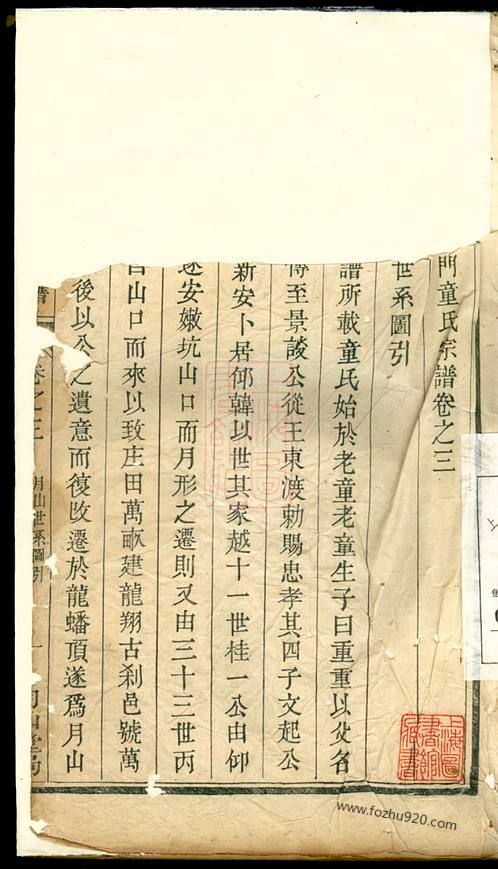 門童氏宗譜卷之三
世系圖引
譜所載童氏始於老童老童生子曰重重以父名
傳至景談公從王東渡勅賜忠孝其四子文起公
新安卜居仰韓以世其家越十一世桂一公由仰
遂安嫩坑山口而月形之遷則又由三十三世丙
山口而來以致庄田萬畝建龍翔古刹邑號萬
後以公之遺意而復改遷於龍蟠頂遂爲月山
卷之三 月山世系圖引 一
上海圖書館藏書
www.fozhu920.com